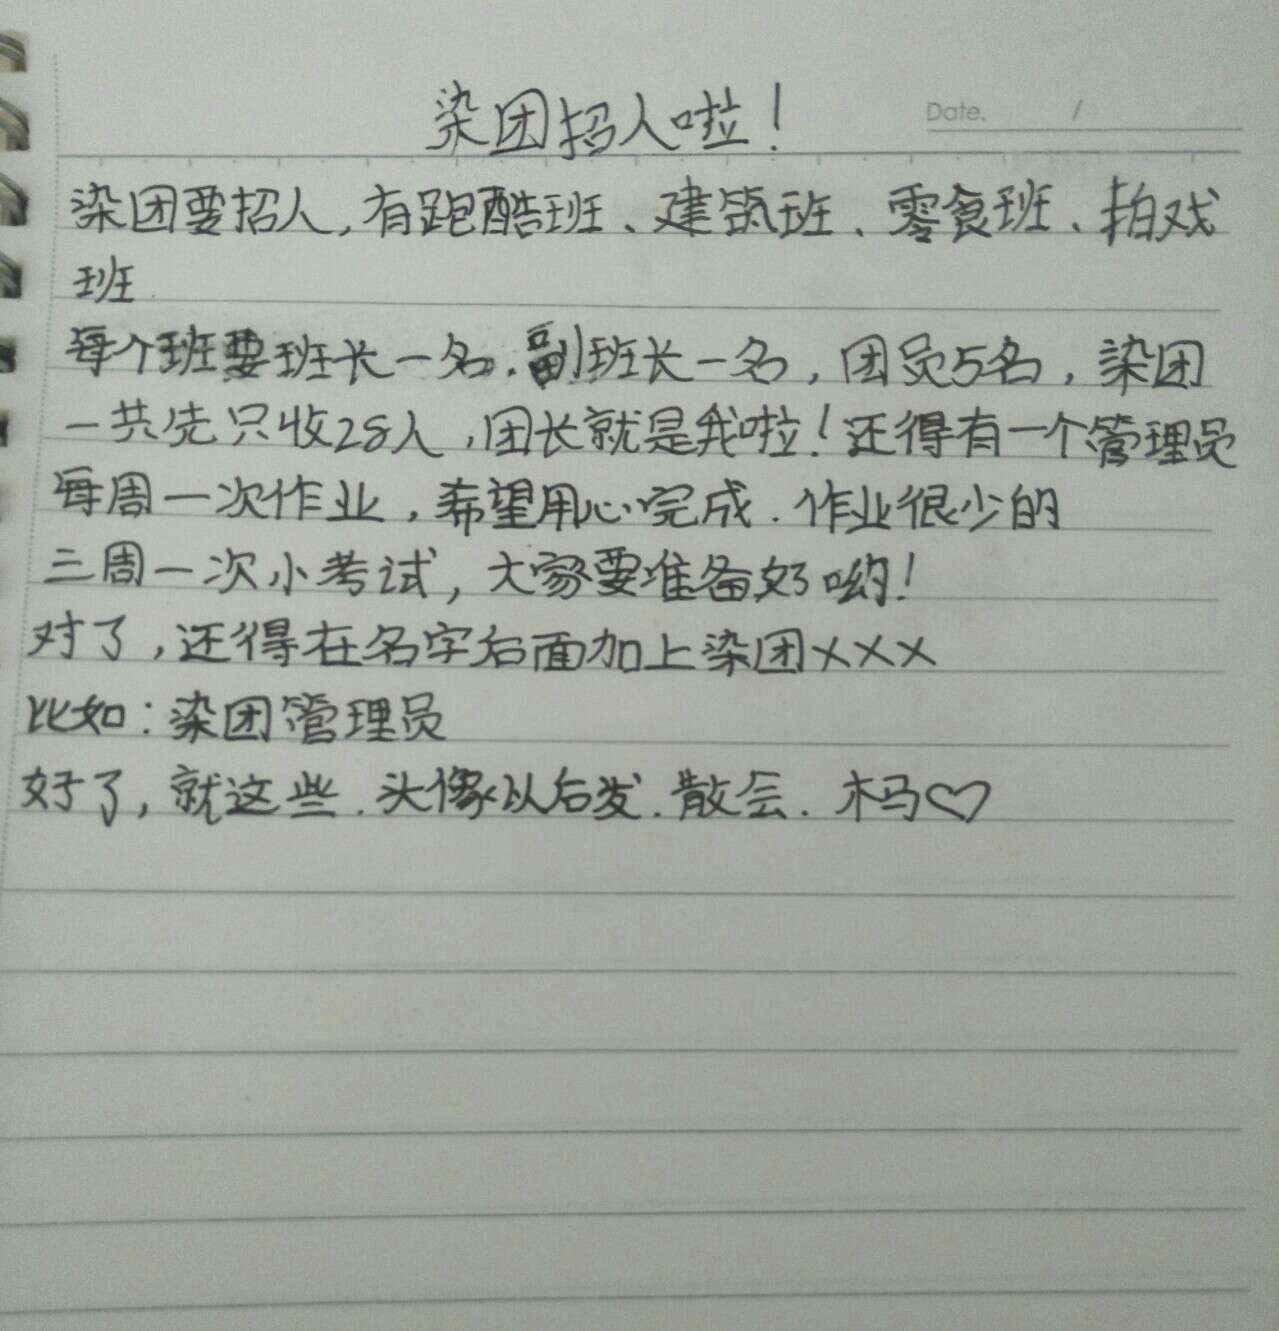 染团招人啦！
Date. /
染团要招人，有跑酷班、建筑班、零食班、拍戏
班.
每个班要班长一名.副班长一名，团员5名，染团
一共先只收28人，团长就是我啦！还得有一个管理员
每周一次作业，希望用心完成.作业很少的
三周一次小考试，大家要准备好哟！
对了，还得在名字后面加上染团×××
比如：染团管理员
好了，就这些.头像以后发.散会.木马♡